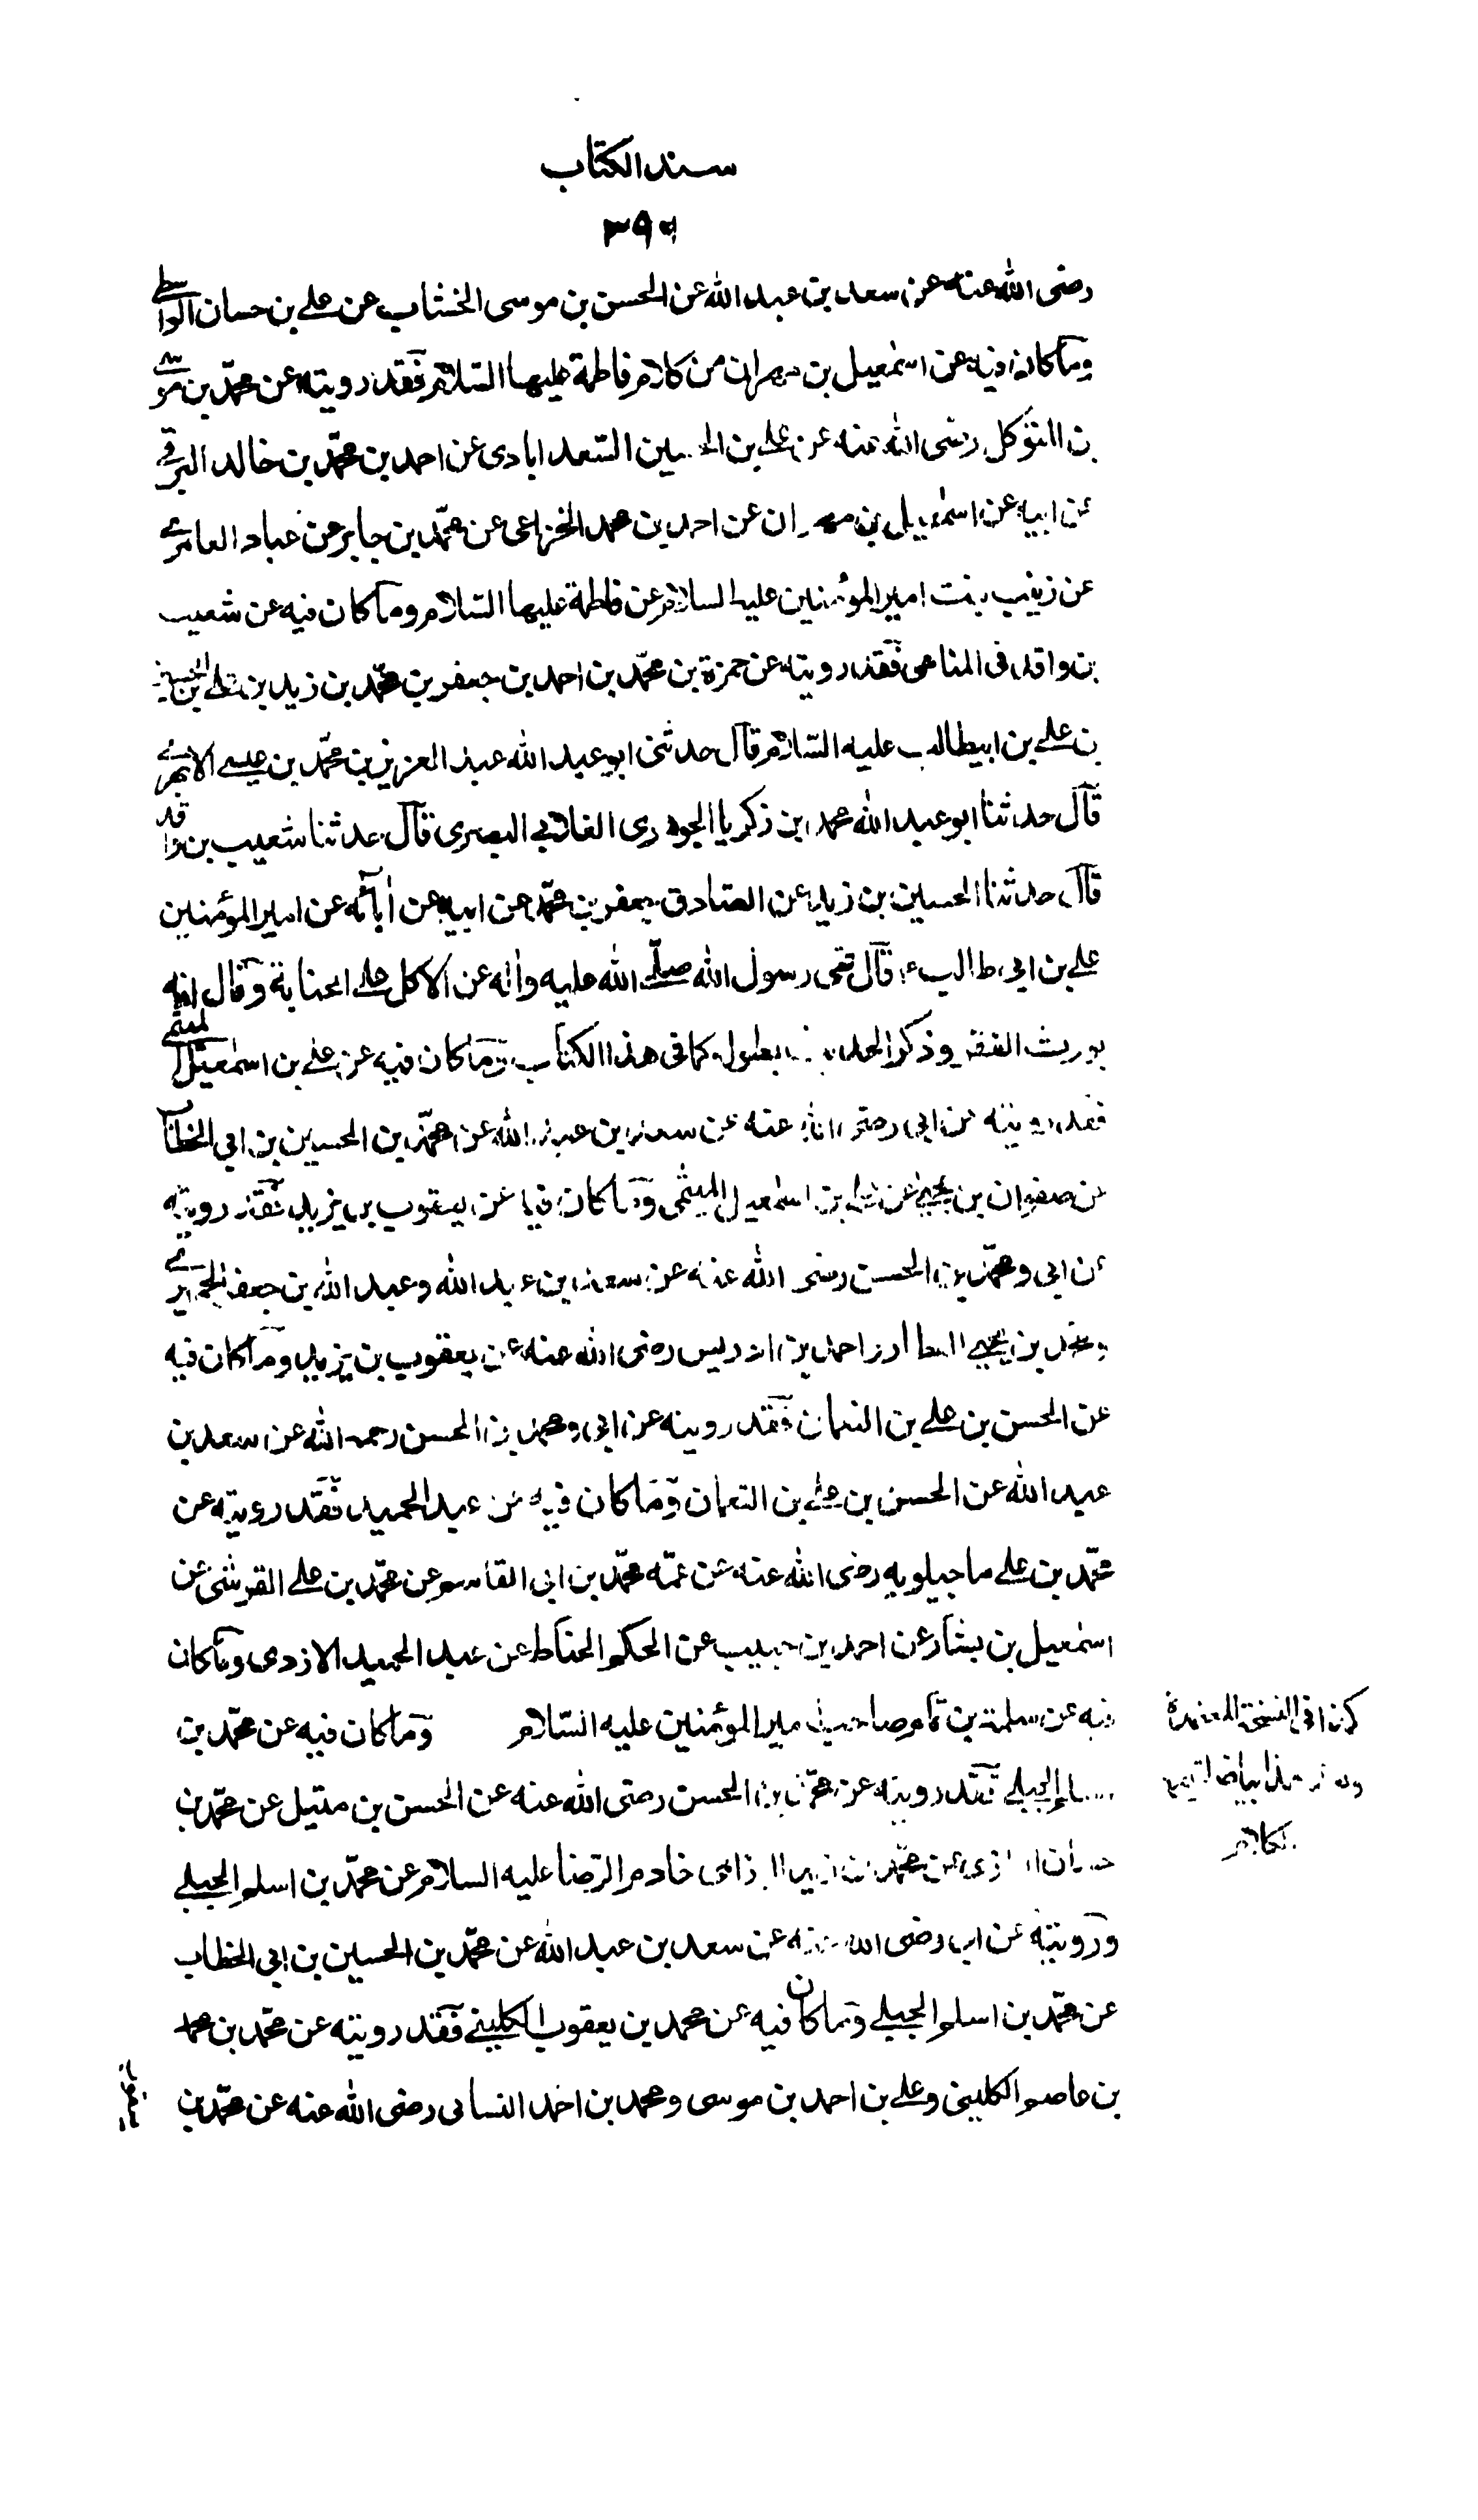 سند الكتاب
٣٩٩
رضى الله عنه عن سعد بن عبد الله عن الحسن بن موسى الخشاب عن على بن حسان الواسطى
وما كان فيه عن اسمعيل بن مهران من كلام فاطمة عليها السلام فقد رويته عن محمد بن موسى
بن المتوكل رضى الله عنه عن على بن الحسين السعدابادى عن احمد بن محمد بن خالد البرقى
عن ابيه عن اسمعيل بن مهران عن احمد بن محمد الخزاعى عن محمد بن جابر عن عباد العامرى
عن زينب بنت امير المؤمنين عليه السلام عن فاطمة عليها السلام وما كان فيه عن شعيب
بن واقد فى المناهى فقد رويته عن حمزة بن محمد بن احمد بن جعفر بن محمد بن زيد بن على بن الحسين
بن على بن ابيطالب عليه السلام قال حدثنى ابو عبد الله عبد العزيز بن محمد بن عيسى الابهرى
قال حدثنا ابو عبد الله محمد ابن زكريا الجوهرى الغلابى البصرى قال حدثنا شعيب بن واقد
قال حدثنا الحسين بن زيد عن الصادق جعفر بن محمد عن ابيه عن آبائه عن امير المؤمنين
على بن ابى طالب ع قال نهى رسول الله صلى الله عليه واله عن الاكل على الجنابة وقال انه
يورث الفقر وذكر الحديث بطوله كما فى هذا الكتاب وما كان فيه عن على بن اسمعيل الميثمى
فقد رويته عن ابى رضى الله عنه عن سعد بن عبد الله عن محمد بن الحسين بن ابى الخطاب
عن صفوان بن يحيى عن على بن اسمعيل الميثمى وما كان فيه عن يعقوب بن يزيد فقد رويته
عن ابى ومحمد بن الحسن رضى الله عنه عن سعد بن عبد الله وعبد الله بن جعفر الحميرى
ومحمد بن يحيى العطار واحمد بن ادريس رضى الله عنه عن يعقوب بن يزيد وما كان فيه
عن الحسن بن على بن النعمان فقد رويته عن ابى ومحمد بن الحسن رحمه الله عن سعد بن
عبد الله عن الحسن بن على بن النعمان وما كان فيه عن عبد الحميد فقد رويته عن
محمد بن على ماجيلويه رضى الله عنه عن عمه محمد بن ابى القاسم عن محمد بن على القرشى عن
اسمعيل بن بشار عن احمد بن حبيب عن الحكم الحناط عن عبد الحميد الازدى وما كان
فيه عن سلمة بن تمام صاحب امير المؤمنين عليه السلام وما كان فيه عن محمد بن
اسلم الجبلى فقد رويته عن محمد بن الحسن رضى الله عنه عن الحسن بن متيل عن محمد بن
حسان الرازى عن محمد بن زيد الرزامى خادم الرضا عليه السلام عن محمد بن اسلم الجبلى
ورويته عن ابى رضى الله عنه عن سعد بن عبد الله عن محمد بن الحسين بن ابى الخطاب
عن محمد بن اسلم الجبلى وما كان فيه عن محمد بن يعقوب الكلينى فقد رويته عن محمد بن محمد
بن عاصم الكلينى وعلى بن احمد بن موسى ومحمد بن احمد السنانى رضى الله عنه عن محمد بن
كذا فى النسخة المعتمدة